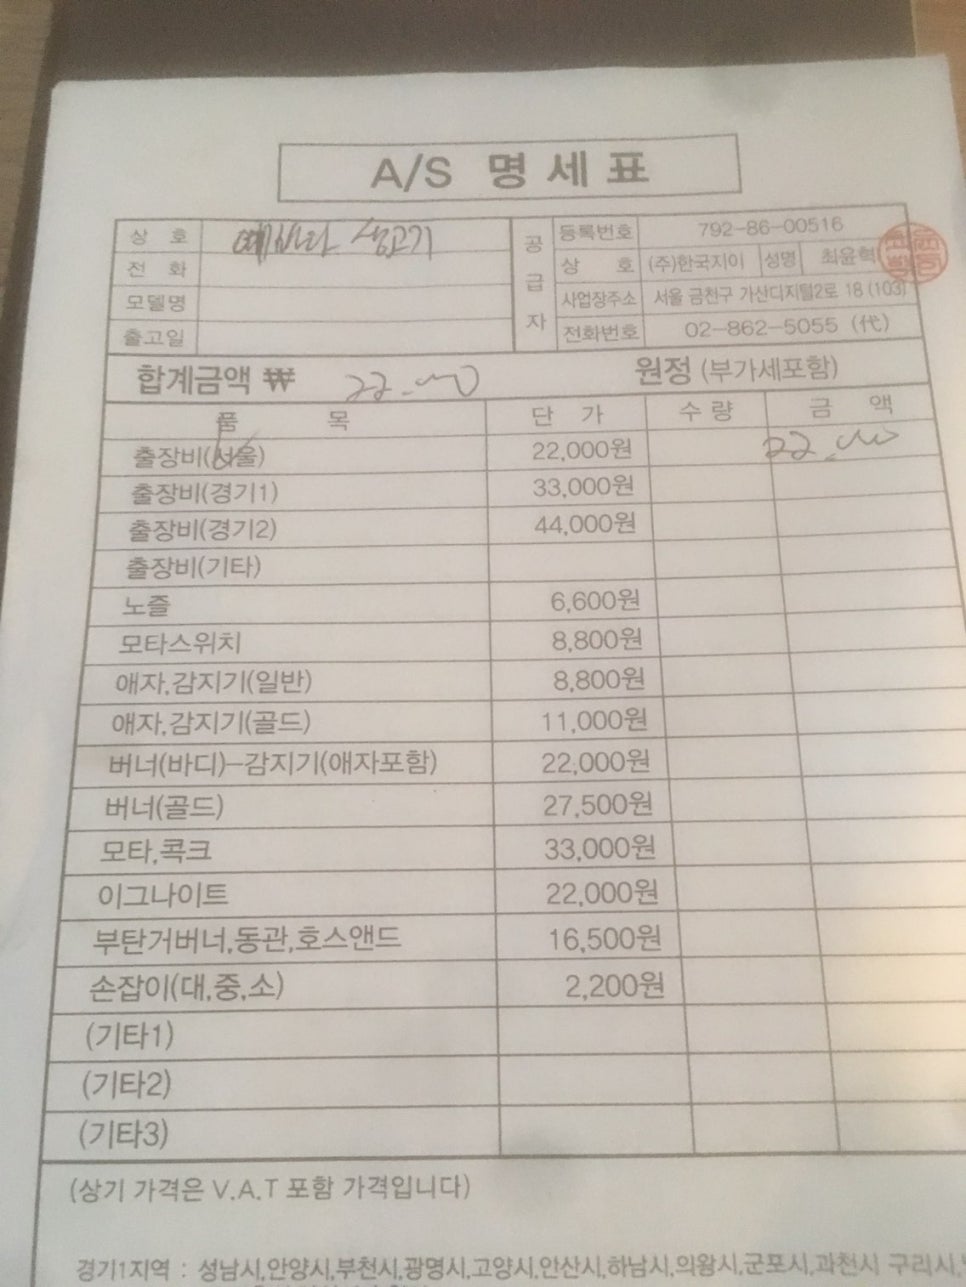 A/S 명세표
상 호
전 화
모델명
출고일
공급자
등록번호 792-86-00516
상 호 (주)한국지이 성명 최윤혁
사업장주소 서울 금천구 가산디지털2로 18 (103)
전화번호 02-862-5055 (代)
합계금액 ₩ 22.000 원정 (부가세포함)
품 목 단 가 수 량 금 액
출장비(서울) 22,000원 22.000
출장비(경기1) 33,000원
출장비(경기2) 44,000원
출장비(기타)
노즐 6,600원
모타스위치 8,800원
애자,감지기(일반) 8,800원
애자,감지기(골드) 11,000원
버너(바디)-감지기(애자포함) 22,000원
버너(골드) 27,500원
모타,콕크 33,000원
이그나이트 22,000원
부탄거버너,동관,호스앤드 16,500원
손잡이(대,중,소) 2,200원
(기타1)
(기타2)
(기타3)
(상기 가격은 V.A.T 포함 가격입니다)
경기1지역 : 성남시,안양시,부천시,광명시,고양시,안산시,하남시,의왕시,군포시,과천시 구리시,